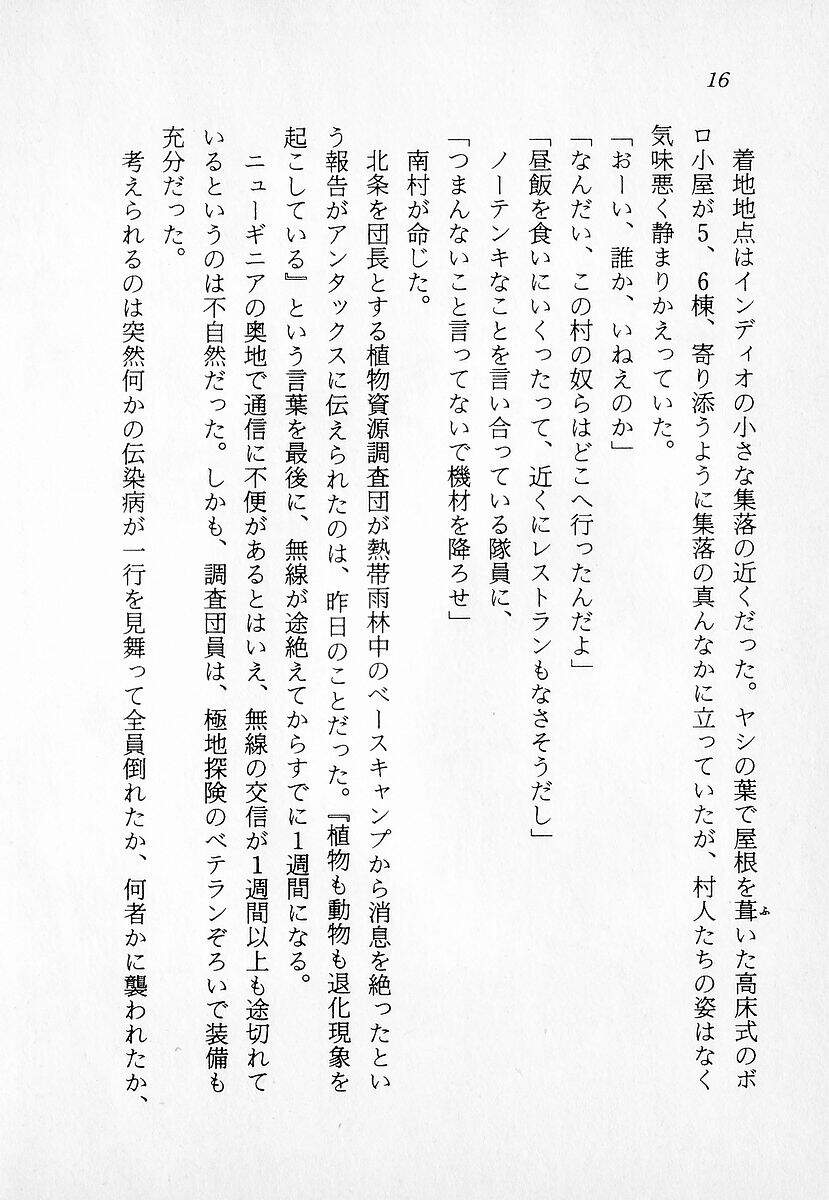 16
着地地点はインディオの小さな集落の近くだった。ヤシの葉で屋根を葺いた高床式のボ
ふ
ロ小屋が5、6棟、寄り添うように集落の真んなかに立っていたが、村人たちの姿はなく
気味悪く静まりかえっていた。
「おーい、誰か、いねえのか」
「なんだい、この村の奴らはどこへ行ったんだよ」
「昼飯を食いにいくったって、近くにレストランもなさそうだし」
ノーテンキなことを言い合っている隊員に、
「つまんないこと言ってないで機材を降ろせ」
南村が命じた。
北条を団長とする植物資源調査団が熱帯雨林中のベースキャンプから消息を絶ったとい
う報告がアンタックスに伝えられたのは、昨日のことだった。『植物も動物も退化現象を
起こしている』という言葉を最後に、無線が途絶えてからすでに1週間になる。
ニューギニアの奥地で通信に不便があるとはいえ、無線の交信が1週間以上も途切れて
いるというのは不自然だった。しかも、調査団員は、極地探険のベテランぞろいで装備も
充分だった。
考えられるのは突然何かの伝染病が一行を見舞って全員倒れたか、何者かに襲われたか、